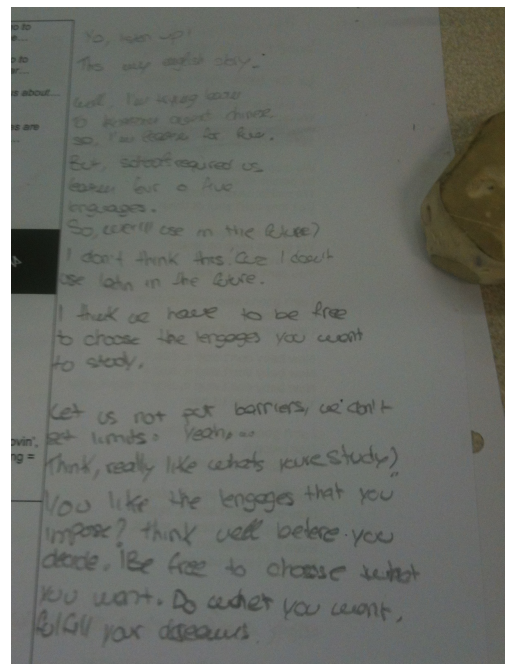 o to
e...
o to
er...
s about...
s are
Yo, listen up!
This my english story.
well, I'm
so, I'm for fun.
But, school required us
learn four o five
lenguages.
So, we'll use in the future?
I don't think this. Cue I don't
use latin in the future.
I think we have to be free
to choose the lengages you want
to study.
Let us not put barriers, we don't
get limits. Yeah,...
ovin',
ng =
Think, really like whats youre study?
You like the lengages that you
impose? think well before you
decide. Be free to choose what
you want. Do whet you want,
fulfill your